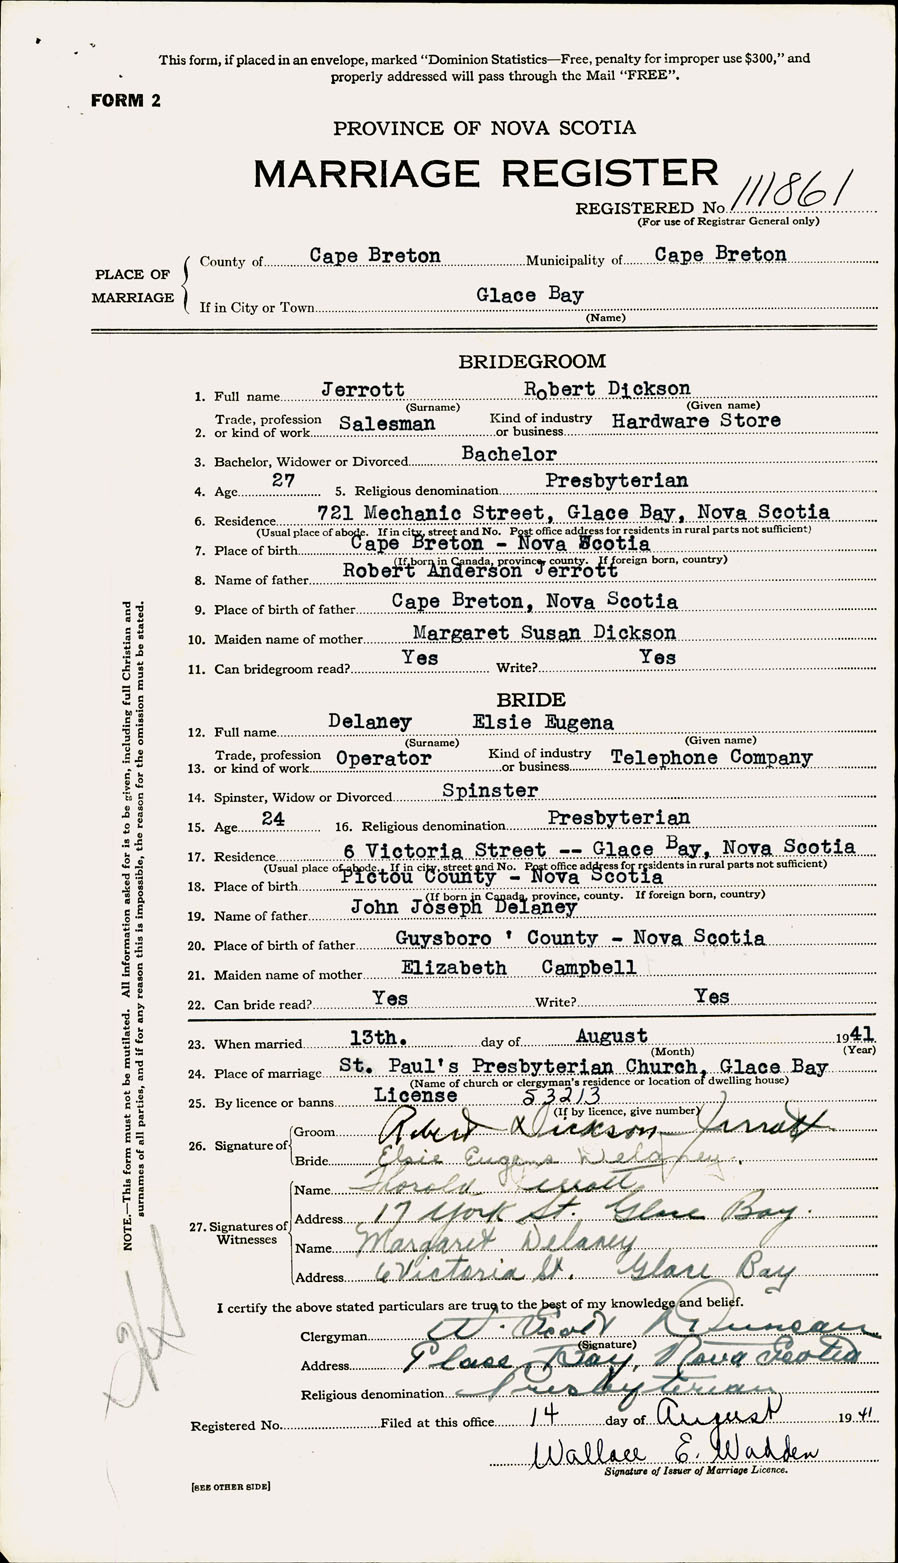 This form, if placed in an envelope, marked "Dominion Statistics—Free, penalty for improper use $300," and
properly addressed will pass through the Mail "FREE".
FORM 2
PROVINCE OF NOVA SCOTIA
MARRIAGE REGISTER
REGISTERED No. 111861
(For use of Registrar General only)
PLACE OF MARRIAGE
County of Cape Breton Municipality of Cape Breton
If in City or Town Glace Bay
(Name)
BRIDEGROOM
1. Full name Jerrott Robert Dickson
(Surname) (Given name)
2. Trade, profession or kind of work Salesman Kind of industry or business Hardware Store
3. Bachelor, Widower or Divorced Bachelor
4. Age 27 5. Religious denomination Presbyterian
6. Residence 721 Mechanic Street, Glace Bay, Nova Scotia
(Usual place of abode. If in city, street and No. Post office address for residents in rural parts not sufficient)
7. Place of birth Cape Breton - Nova Scotia
(If born in Canada, province, county. If foreign born, country)
8. Name of father Robert Anderson Jerrott
9. Place of birth of father Cape Breton, Nova Scotia
10. Maiden name of mother Margaret Susan Dickson
11. Can bridegroom read? Yes Write? Yes
BRIDE
12. Full name Delaney Elsie Eugena
(Surname) (Given name)
13. Trade, profession or kind of work Operator Kind of industry or business Telephone Company
14. Spinster, Widow or Divorced Spinster
15. Age 24 16. Religious denomination Presbyterian
17. Residence 6 Victoria Street -- Glace Bay, Nova Scotia
(Usual place of abode. If in city, street and No. Post office address for residents in rural parts not sufficient)
18. Place of birth Pictou County - Nova Scotia
(If born in Canada, province, county. If foreign born, country)
19. Name of father John Joseph Delaney
20. Place of birth of father Guysboro ' County - Nova Scotia
21. Maiden name of mother Elizabeth Campbell
22. Can bride read? Yes Write? Yes
23. When married 13th. day of August 1941
(Month) (Year)
24. Place of marriage St. Paul's Presbyterian Church, Glace Bay
(Name of church or clergyman's residence or location of dwelling house)
25. By licence or banns License 53213
(If by licence, give number)
26. Signature of Groom Robert Dickson Jerrott
Bride Elsie Eugena Delaney.
27. Signatures of Witnesses
Name Thorold Jerrott
Address 17 York St. Glace Bay.
Name Margaret Delaney
Address 6 Victoria St. Glace Bay
I certify the above stated particulars are true to the best of my knowledge and belief.
Clergyman W. Scott Duncan
(Signature)
Address Glace Bay, Nova Scotia
Religious denomination Presbyterian
Registered No. Filed at this office 14 day of August 1941
Wallace E. Wadden
Signature of Issuer of Marriage Licence.
[SEE OTHER SIDE]
NOTE.—This form must not be mutilated. All information asked for is to be given, including full Christian and
surnames of all parties, and if for any reason this is impossible, the reason for the omission must be stated.